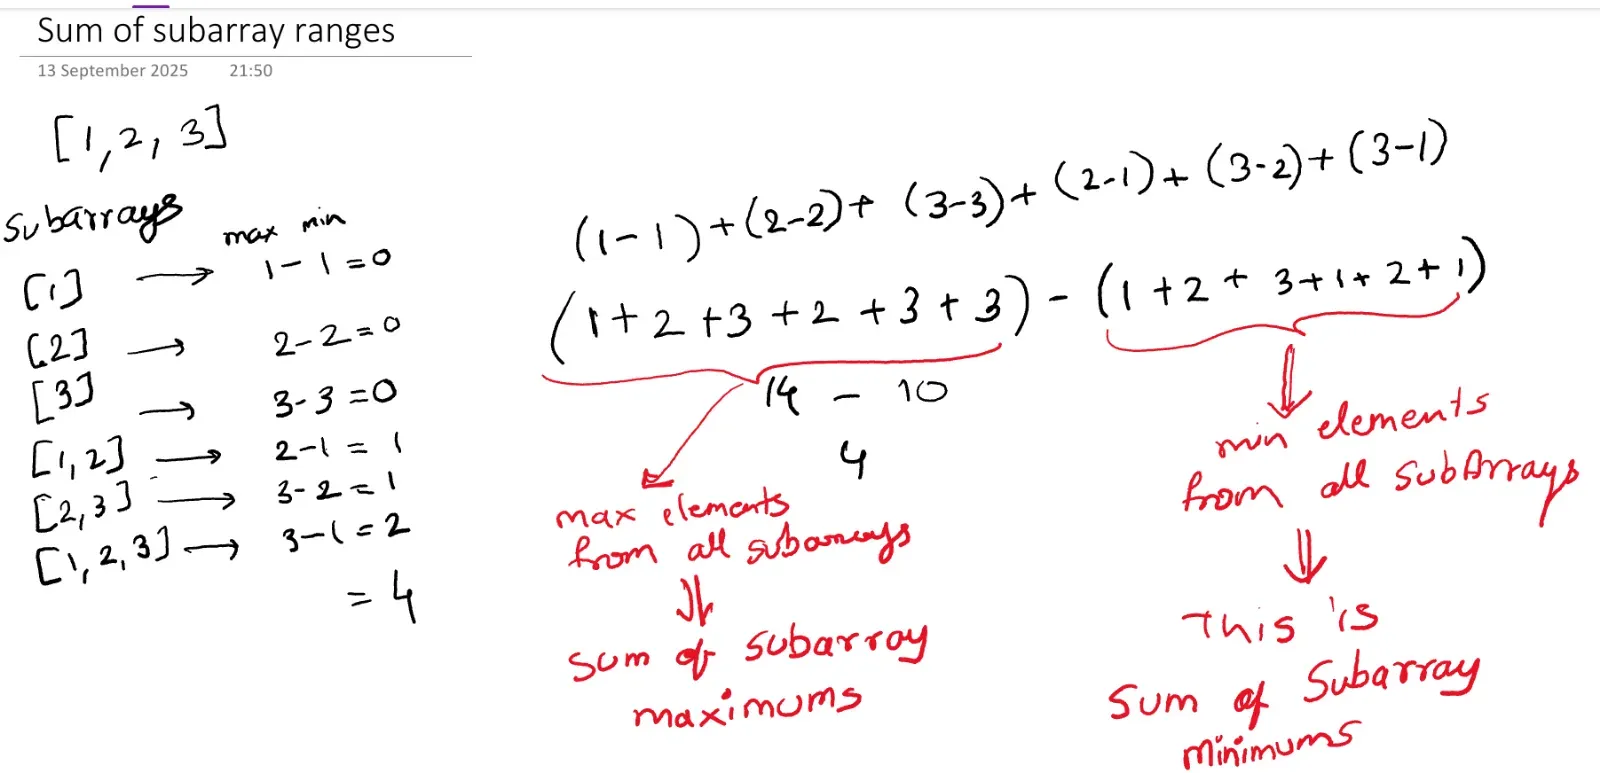 Sum of subarray ranges
13 September 2025 21:50
[1, 2, 3]
Subarrays
max min
[1] → 1 - 1 = 0
[2] → 2 - 2 = 0
[3] → 3 - 3 = 0
[1, 2] → 2 - 1 = 1
[2, 3] → 3 - 2 = 1
[1, 2, 3] → 3 - 1 = 2
= 4
(1 - 1) + (2 - 2) + (3 - 3) + (2 - 1) + (3 - 2) + (3 - 1)
(1 + 2 + 3 + 2 + 3 + 3) - (1 + 2 + 3 + 1 + 2 + 1)
14 - 10
4
max elements
from all subarrays
⇓
Sum of subarray
maximums
⇓
min elements
from all SubArrays
⇓
This is
Sum of Subarray
Minimums